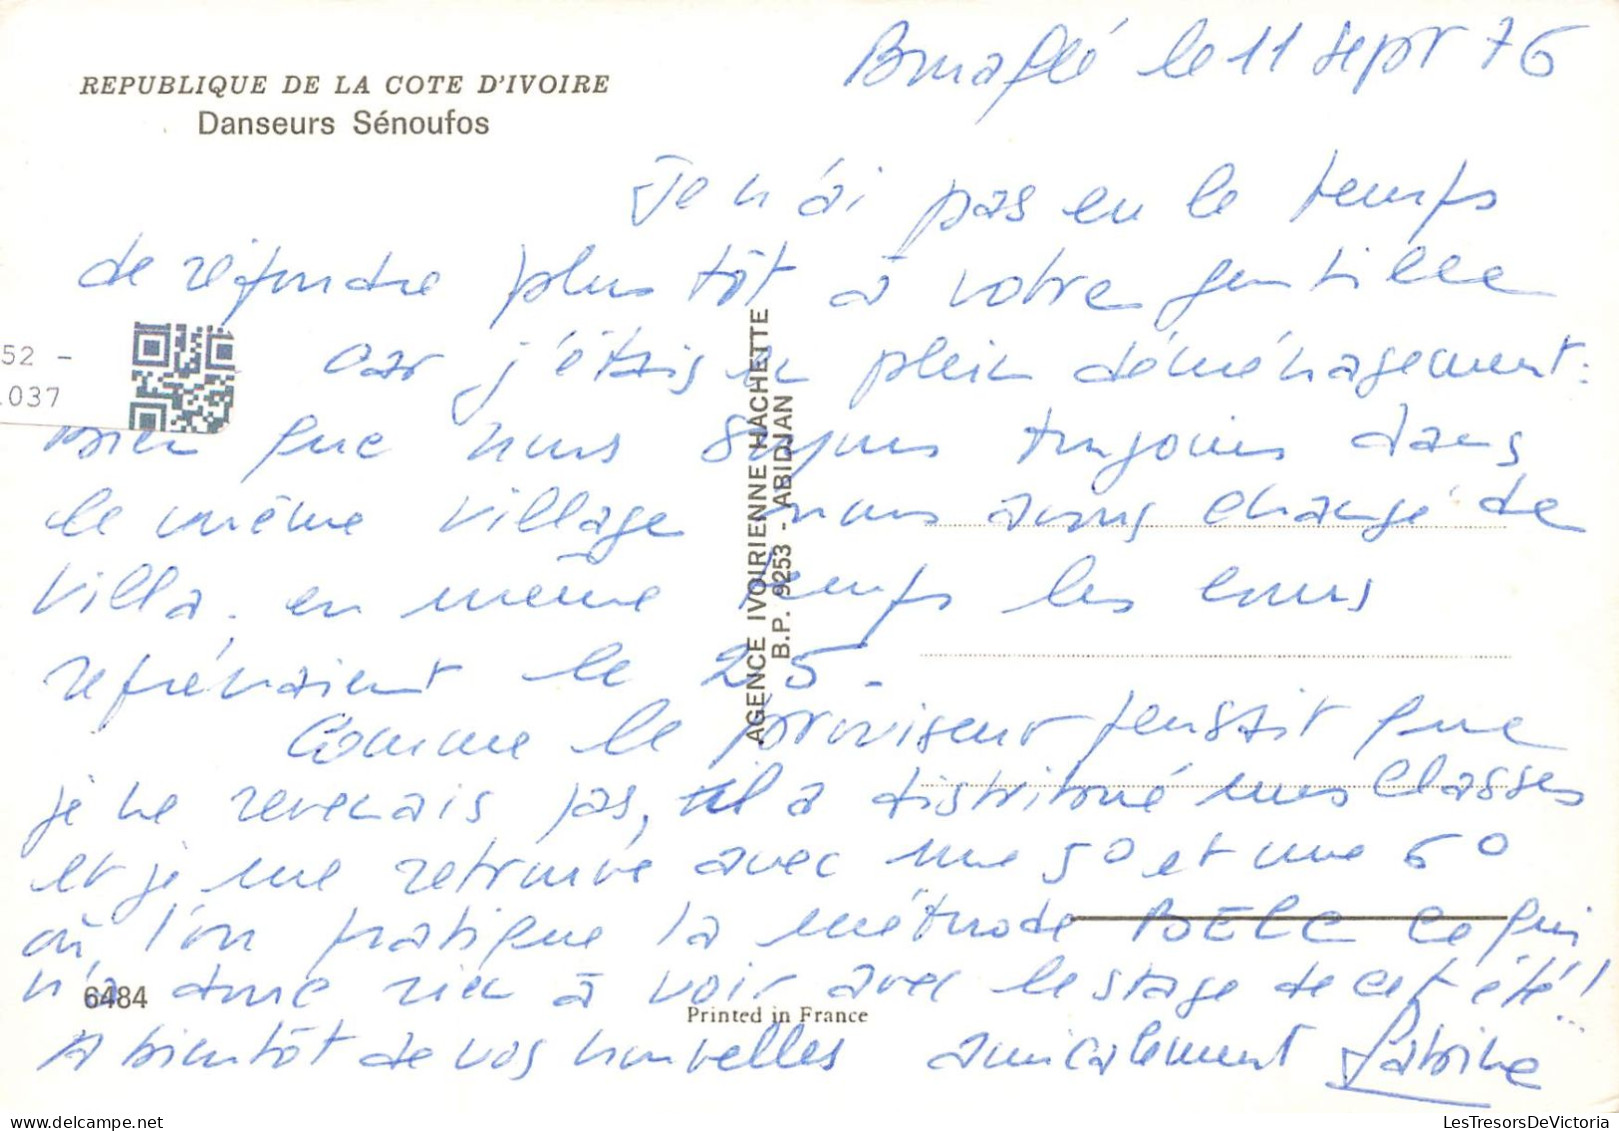 Bouaflé le 11 sept 76
REPUBLIQUE DE LA COTE D'IVOIRE
Danseurs Sénoufos
Je n'ai pas eu le temps
de répondre plus tôt à votre gentille
car j'étais en plein déménagement :
52 -
037
Bien que nous soyons toujours dans
le même village nous avons changé de
villa, en même temps les cours
reprenaient le 25.
AGENCE IVOIRIENNE HACHETTE
B.P. 9253 - ABIDJAN
Comme le proviseur pensait que
je ne revenais pas, il a distribué mes classes
et je me retrouve avec une 5° et une 6°
où l'on pratique la méthode BELC ce qui
n'a donc rien à voir avec le stage de cet été !...
6484
Printed in France
A bientôt de vos nouvelles amicalement Sabine
LesTresorsDeVictoria
www.LesTresorsDeVictoria.com